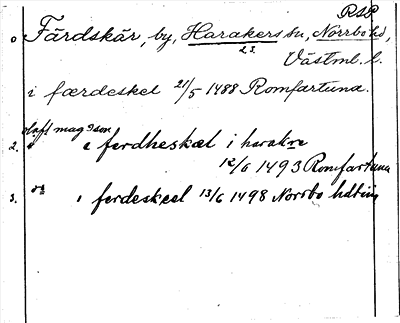 RSP
Färdskär, by, Harakers sn, Norrbo hd,
23.
Västml. l.
i færdeskel 21/5 1488 Romfartuna.
olaff magson
2. i ferdheskæl i harakre
12/6 1493 Romfartuna
3. i ferdeskeel 13/6 1498 Norrbo hdting